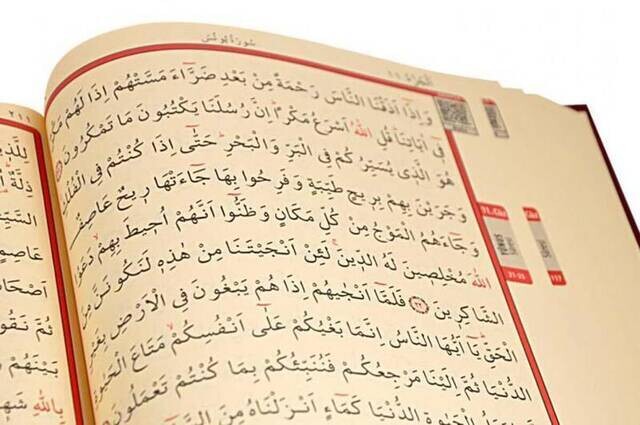 سُورَةُ يُونُسَ
اَلْجُزْءُ ١١
وَاِذَٓا اَذَقْنَا النَّاسَ رَحْمَةً مِنْ بَعْدِ ضَرَّٓاءَ مَسَّتْهُمْ اِذَا لَهُمْ
فِٓي اٰيَاتِنَاۜ قُلِ اللّٰهُ اَسْرَعُ مَكْرًاۜ اِنَّ رُسُلَنَا يَكْتُبُونَ مَا تَمْكُرُونَ
هُوَ الَّذِي يُسَيِّرُكُمْ فِي الْبَرِّ وَالْبَحْرِۜ حَتّٰٓى اِذَا كُنْتُمْ فِي الْفُلْكِۚ
وَجَرَيْنَ بِهِمْ بِرِيحٍ طَيِّبَةٍ وَفَرِحُوا بِهَا جَٓاءَتْهَا رِيحٌ عَاصِفٌ
وَجَٓاءَهُمُ الْمَوْجُ مِنْ كُلِّ مَكَانٍ وَظَنُّٓوا اَنَّهُمْ اُحِيطَ بِهِمْۙ دَعَوُا
اللّٰهَ مُخْلِصِينَ لَهُ الدِّينَۚ لَئِنْ اَنْجَيْتَنَا مِنْ هٰذِهِ لَنَكُونَنَّ مِنَ
الشَّاكِرِينَ ﴿٢٢﴾ فَلَمَّٓا اَنْجٰيهُمْ اِذَا هُمْ يَبْغُونَ فِي الْاَرْضِ بِغَيْرِ
الْحَقِّۜ يَٓا اَيُّهَا النَّاسُ اِنَّمَا بَغْيُكُمْ عَلٰٓى اَنْفُسِكُمْۙ مَتَاعَ الْحَيٰوةِ
الدُّنْيَاۘ ثُمَّ اِلَيْنَا مَرْجِعُكُمْ فَنُنَبِّئُكُمْ بِمَا كُنْتُمْ تَعْمَلُونَ
الْحَيٰوةِ الدُّنْيَا كَمَٓاءٍ اَنْزَلْنَاهُ مِنَ
٢١١
لِلَّذِينَ
ذِلَّةٌۜ
عَاصِمٍ
اَصْحَابُ
ثُمَّ نَقُو
بَيْنَهُمْ
بِاللّٰهِ شَهِ